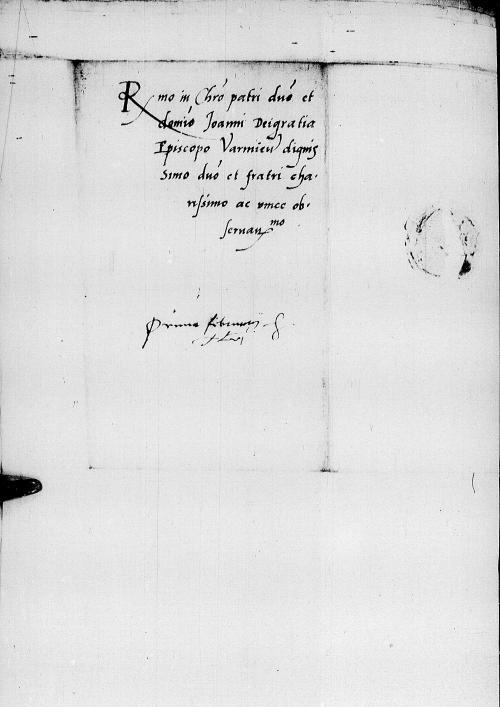 Rmo in Chro patri duo et
domio Joanni Dei gratia
Episcopo Varmien dignis
simo duo et fratri cha-
rissimo ac vnice ob-
seruanmo
prima